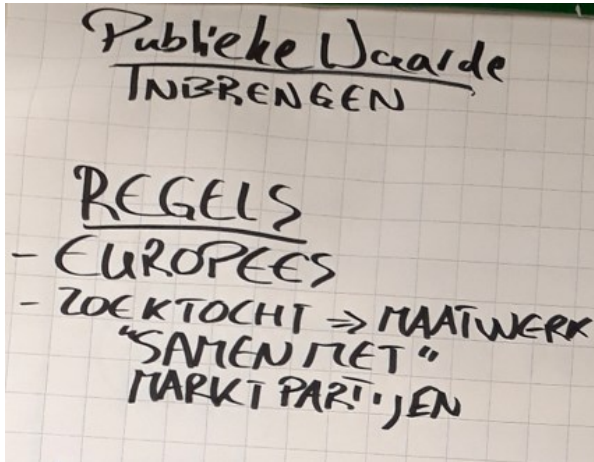 Publieke Waarde
INBRENGEN
REGELS
- EUROPEES
- ZOEKTOCHT ⇒ MAATWERK
"SAMEN MET"
MARKTPARTIJEN